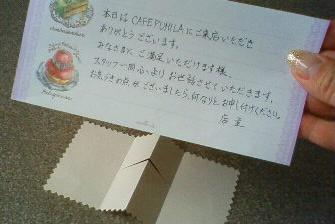 本日は CAFE PUHILAにご来店いただき
ありがとうございます。
みなさまに、ご満足いただけます様、
スタッフ一同心よりお世話させていただきます。
お気づきの点がございましたら、何なりとお申し付けください。
店主